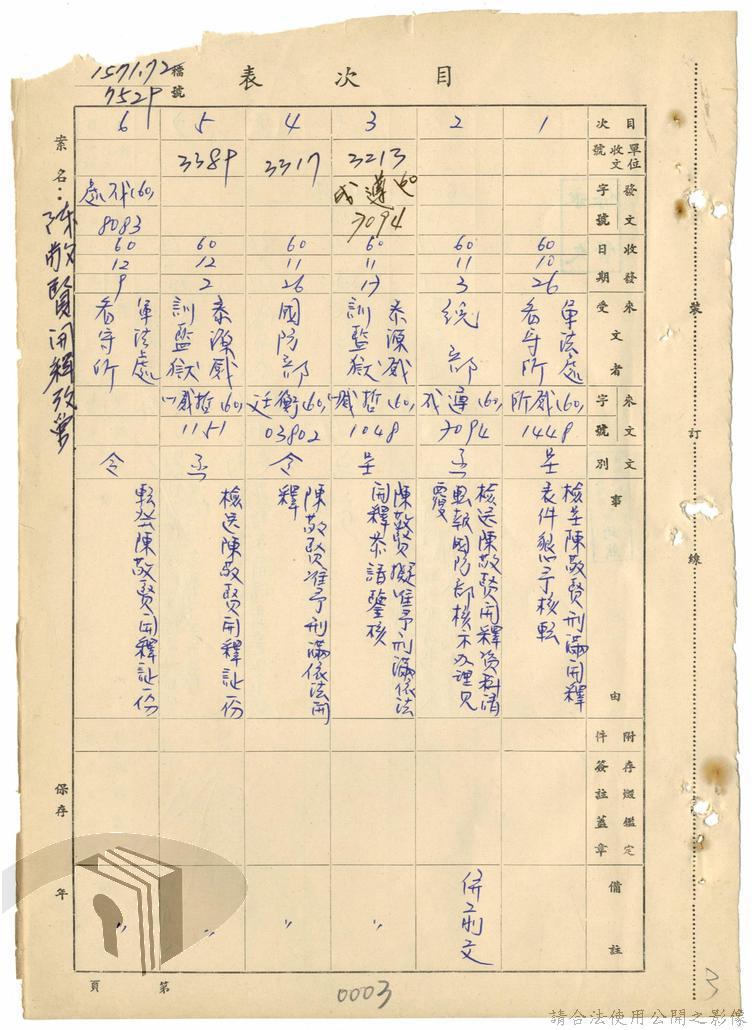 目次表
檔號
1571.72
7529
案名：陳敬賢開釋改業
目次
單位收文號
發文字號
收發日期
來文受文者
來文字號
文別
事由
附件
存燬鑑定簽註蓋章
備註
1
60
10
26
軍法處看守所
(60)威所
1449
呈
核呈陳敬賢刑滿開釋
表件懇予核轉
2
60
11
3
總部
(60)遵成
7094
函
核送陳敬賢開釋資料請
惠報國防部核示辦理見
覆
併前文
3
3213
(60)遵成
7094
60
11
17
泰源感訓監獄
(60)哲感
1048
呈
陳敬賢擬准予刑滿依法
開釋恭請鑒核
〃
4
3317
60
11
26
國防部
(60)衡廷
03802
令
陳敬賢准予刑滿依法開
釋
〃
5
3389
60
12
2
泰源感訓監獄
(60)哲感
1151
函
檢送陳敬賢開釋証一份
〃
6
(60)成處
8083
60
12
9
軍法處看守所
令
轉發陳敬賢開釋証一份
〃
裝訂線
保存 年
第 頁
0003
3
請合法使用公開之影像